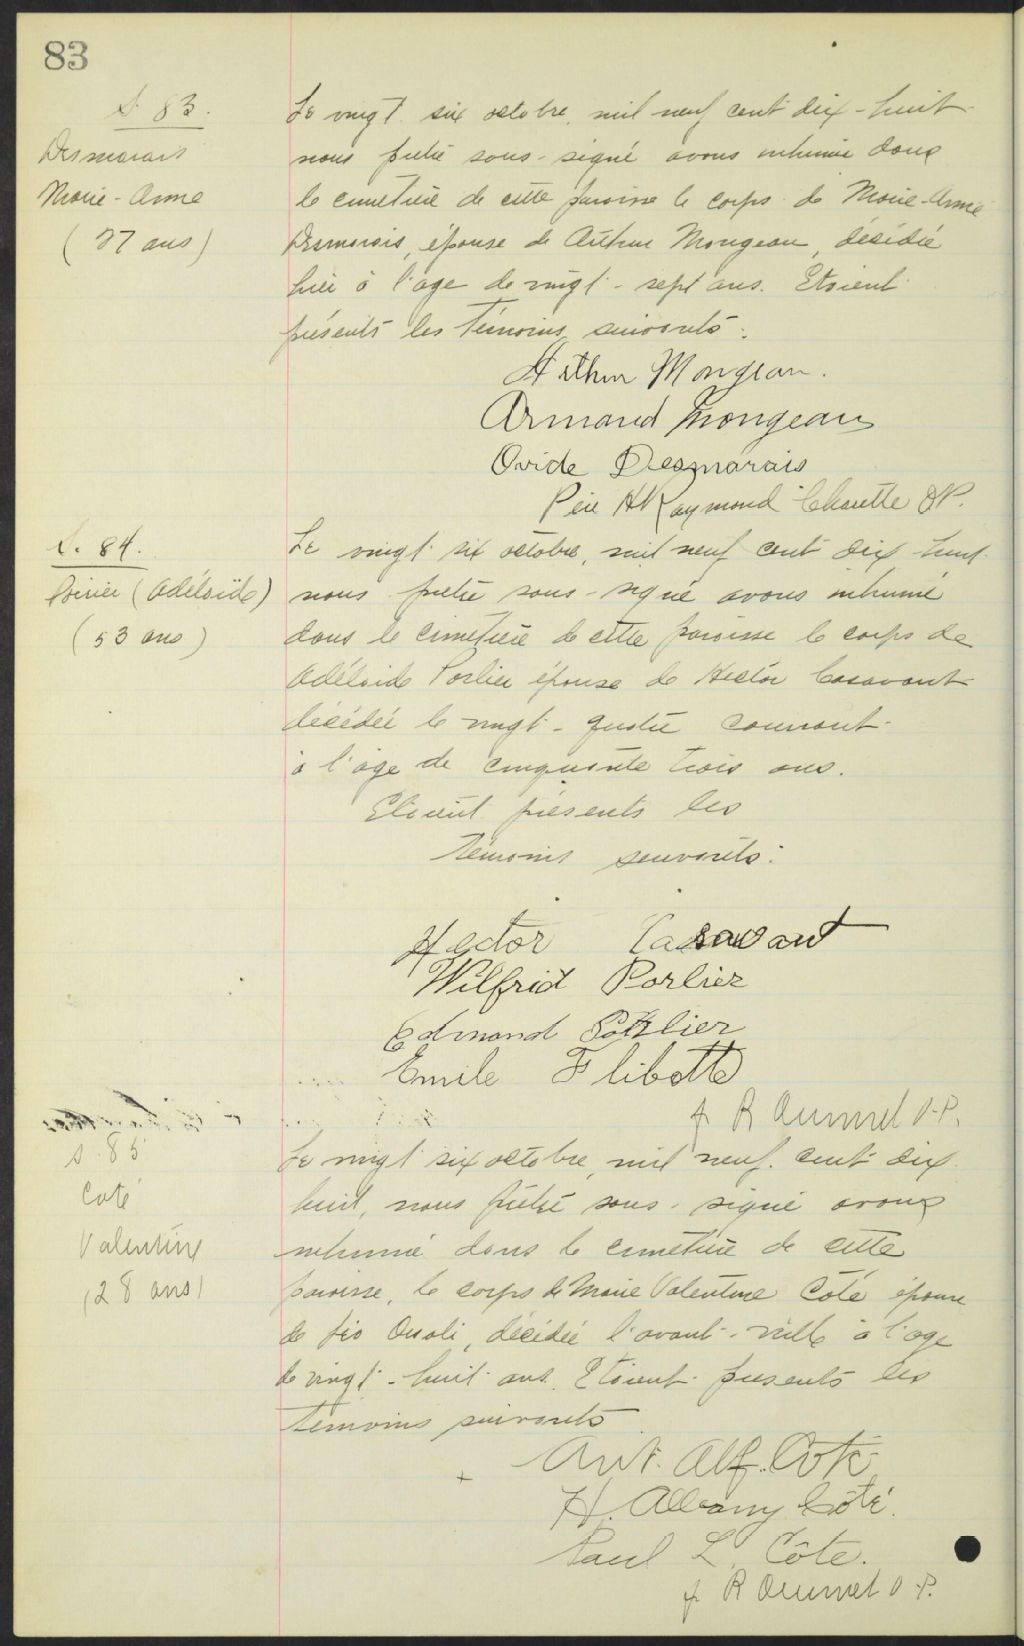 83
S. 83.
Desmarais
Marie-Anne
(27 ans)
Le vingt six octobre, mil neuf cent dix-huit
nous prêtre sous-signé avons inhumé dans
le cimetière de cette paroisse le corps de Marie-Anne
Desmarais, épouse de Arthur Mongeau, décédée
hier à l'age de vingt-sept ans. Etaient
présents les témoins suivants:
Arthur Mongeau.
Armand Mongeau
Ovide Desmarais
Père Raymond Charette OP.
S. 84.
(Adélaïde)
(53 ans)
Le vingt six octobre, mil neuf cent dix huit
nous prêtre sous-signé avons inhumé
dans le cimetière de cette paroisse le corps de
Adélaide Porlier épouse de Hector Casavant
décédée le vingt-quatre courant
à l'âge de cinquante trois ans.
Etaient présents les
témoins suivants:
Hector Casavant
Wilfrid Porlier
Edmond Porlier
Emile Flibotte
fr R O.P.
S. 85
Coté
Valentine
(28 ans)
Le vingt six octobre, mil neuf cent dix
huit, nous prêtre sous-signé avons
inhumé dans le cimetière de cette
paroisse, le corps de Marie Valentine Côté épouse
de Léo décédée l'avant-veille à l'age
de vingt-huit ans. Etaient présents les
témoins suivants
Ant. Alf. Coté
H. Albany Côté.
Paul L. Côté.
fr R O.P.